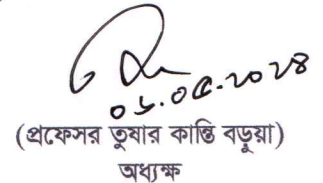 ০৮.০৫.২০২৪
(প্রফেসর তুষার কান্তি বড়ুয়া)
অধ্যক্ষ